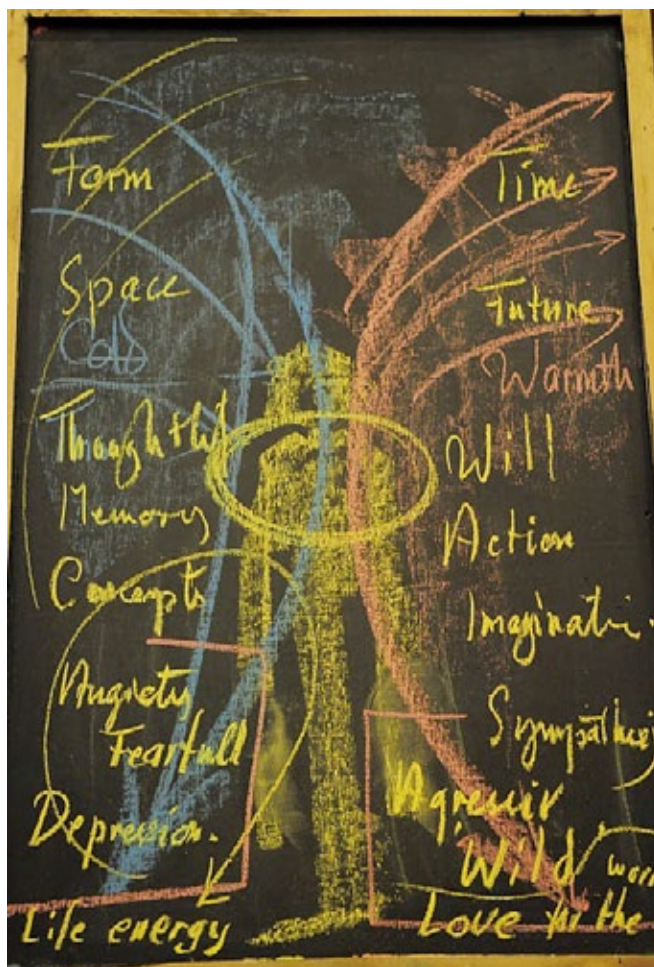 Form
Space
Cold
Thought
Memory
Concepts
Anxiety
Fearfull
Depression.
Life energy
Time
Future
Warmth
Will
Action
Imaginati
Sympathie
Agressiv
Wild
Love for the